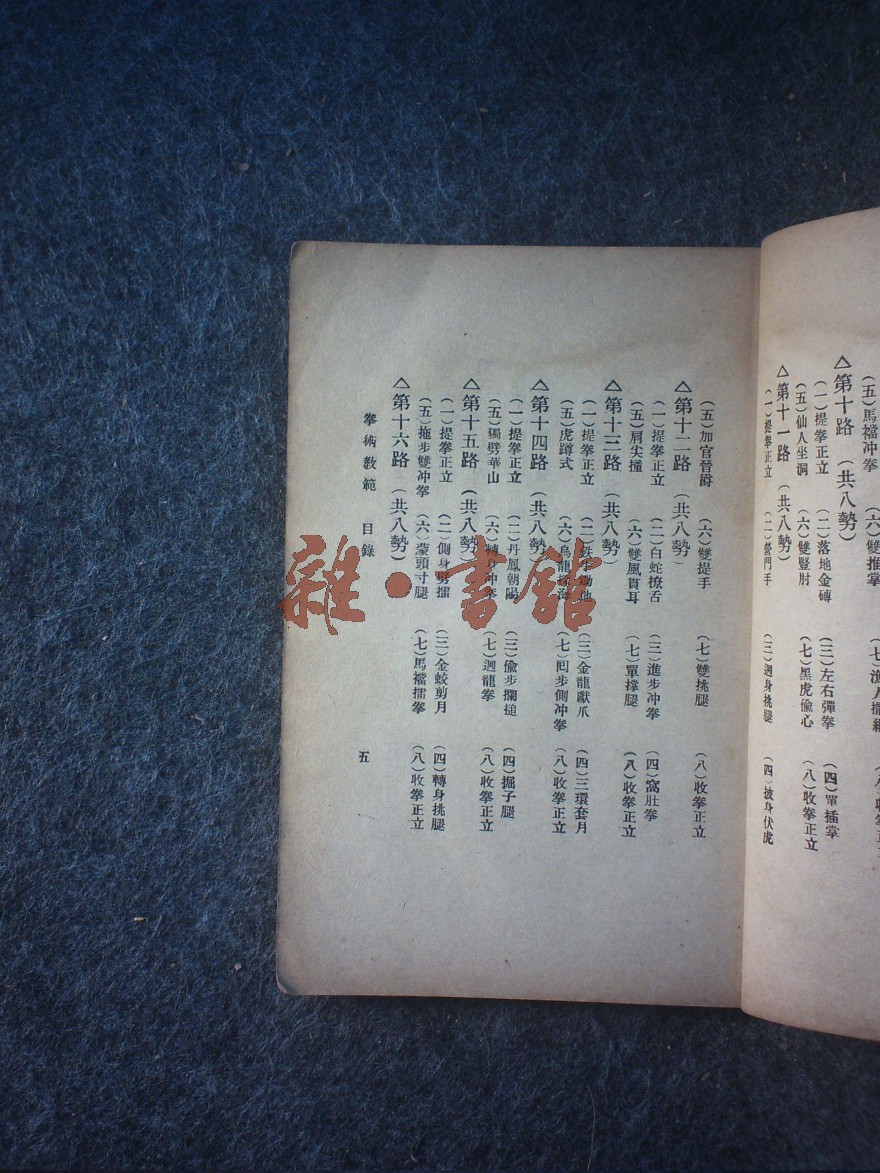 (五)馬襠冲拳 (六)雙推掌
△第十路 (共八勢)
(一)提拳正立 (二)落地金磚 (三)左右彈拳 (四)單插掌
(五)仙人坐洞 (六)雙豎肘 (七)黑虎偷心 (八)收拳正立
△第十一路 (共八勢)
(一)提拳正立 (二)營門手 (三)迴身挑腿 (四)披身伏虎
(五)加官晉爵 (六)雙提手 (七)雙挑腿 (八)收拳正立
△第十二路 (共八勢)
(一)提拳正立 (二)白蛇撩舌 (三)進步冲拳 (四)窩肚拳
(五)肩尖撞 (六)雙風貫耳 (七)單撑腿 (八)收拳正立
△第十三路 (共八勢)
(一)提拳正立 (二)鉄牛 (三)金龍獻爪 (四)三環套月
(五)虎蹲式 (六)烏龍探海 (七)囘步側冲拳 (八)收拳正立
△第十四路 (共八勢)
(一)提拳正立 (二)丹鳳朝陽 (三)偷步攔搥 (四)掘子腿
(五)獨劈華山 (六)轉身冲拳 (七)迴龍拳 (八)收拳正立
△第十五路 (共八勢)
(一)提拳正立 (二)側身劈擂 (三)金蛟剪月 (四)轉身挑腿
(五)拖步雙冲拳 (六)蒙頭寸腿 (七)馬襠擂拳 (八)收拳正立
△第十六路 (共八勢)
拳術敎範 目錄
五
雜·書館